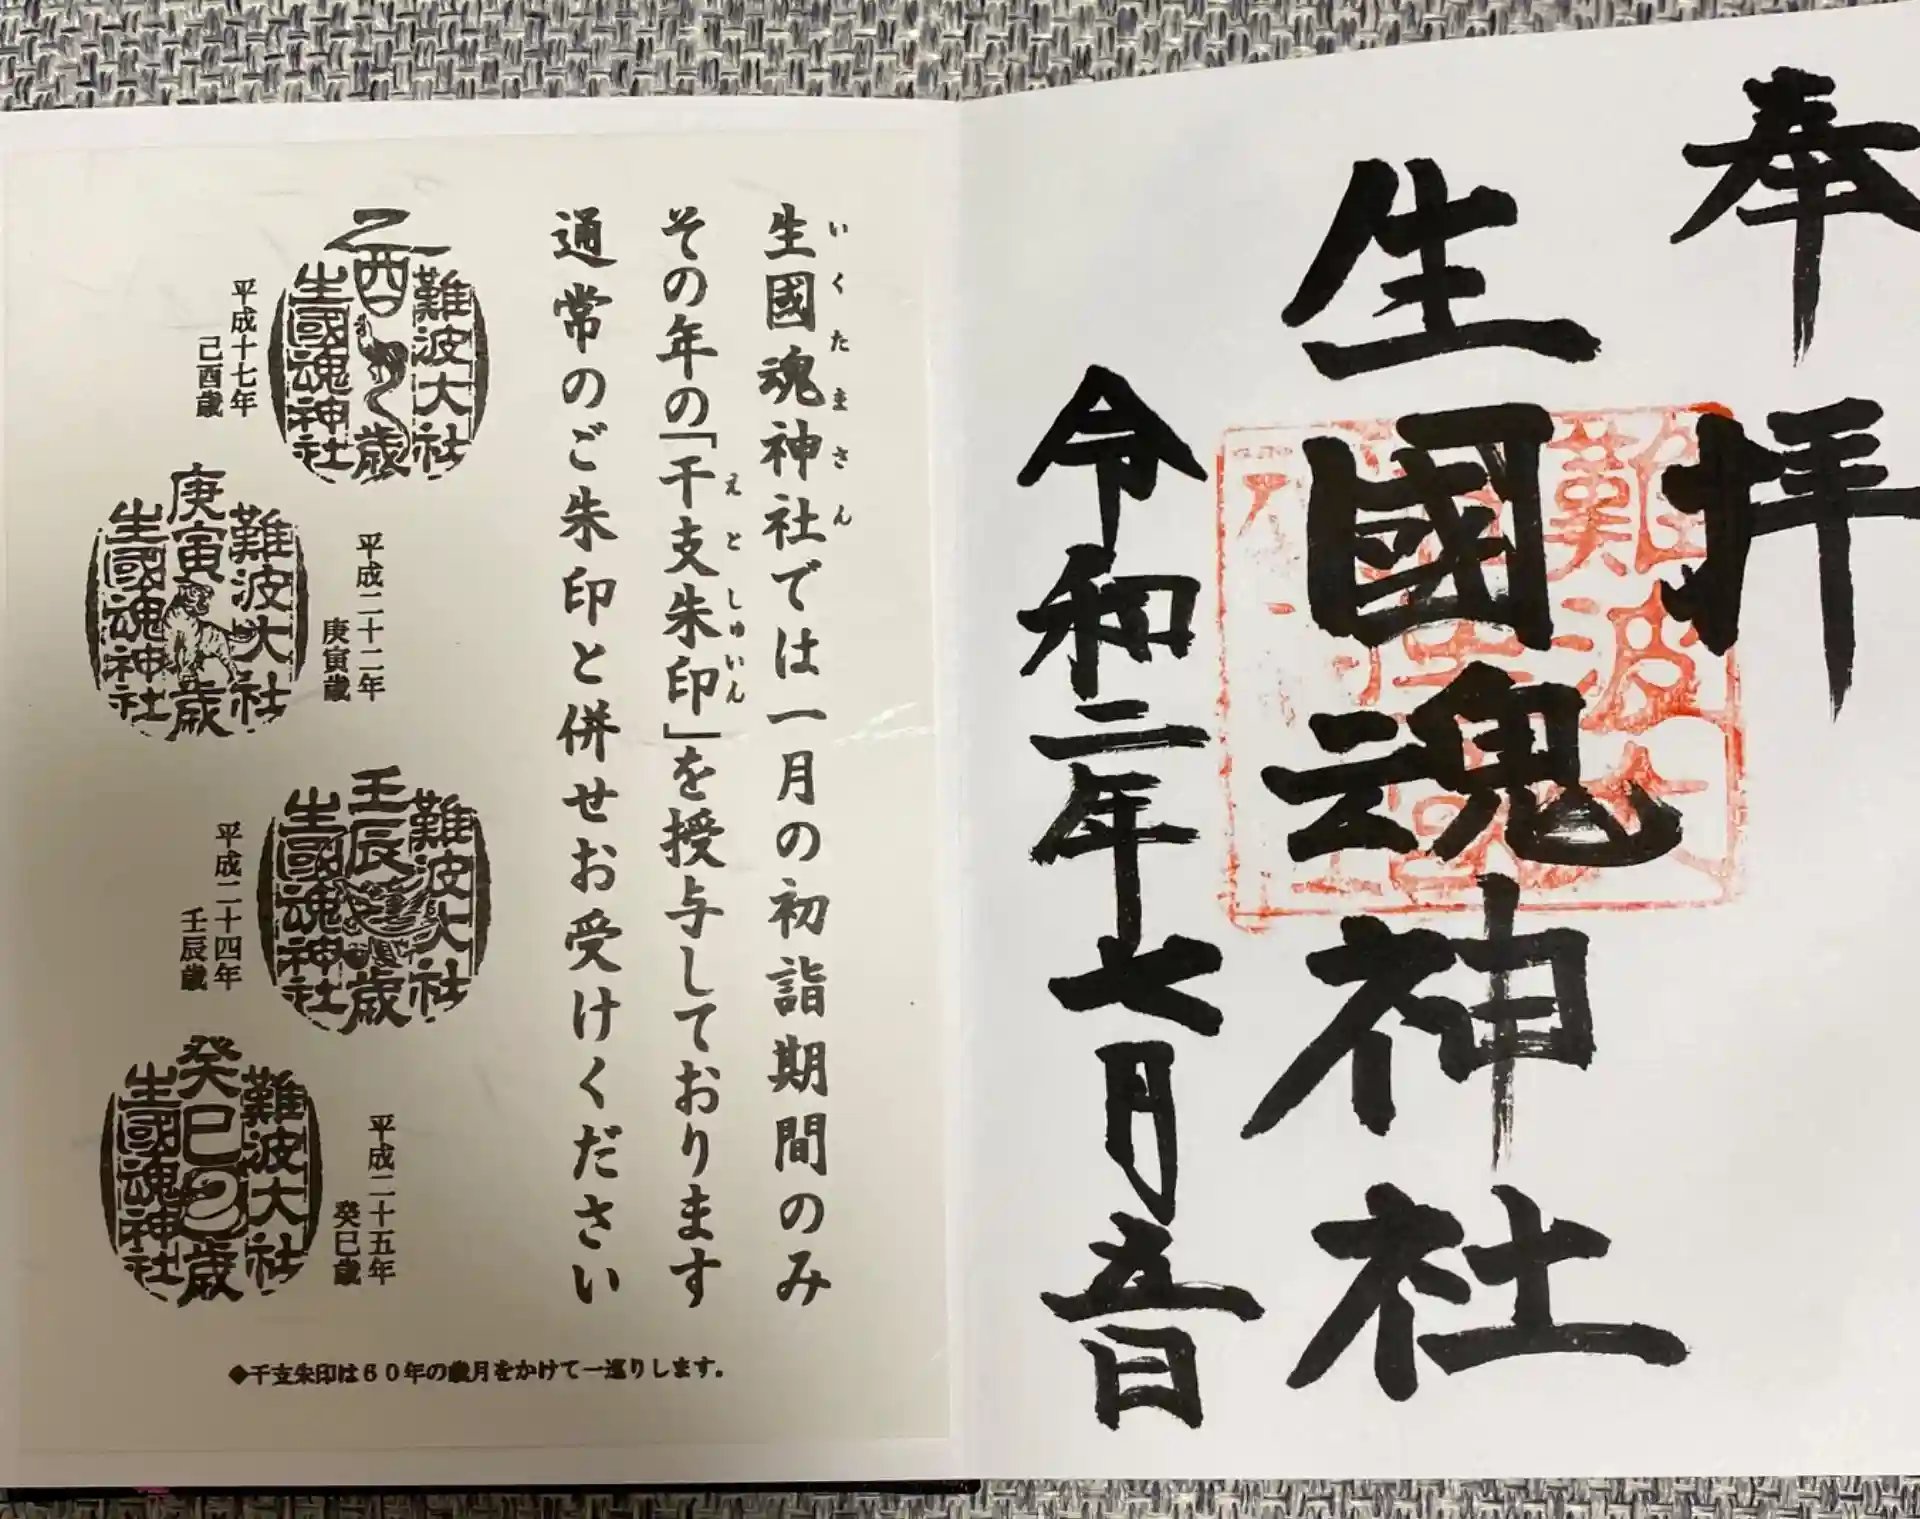 奉拝
生國魂神社
令和二年七月五日
難波大
生國魂神社では一月の初詣期間のみ
いくたまさん
その年の「干支朱印」を授与しております
えとしゅいん
通常のご朱印と併せお受けください
難波大社
乙酉歳
生國魂神社
平成十七年
己酉歳
難波大社
庚寅歳
生國魂神社
平成二十二年
庚寅歳
難波大社
壬辰歳
生國魂神社
平成二十四年
壬辰歳
難波大社
癸巳歳
生國魂神社
平成二十五年
癸巳歳
◆干支朱印は60年の歳月をかけて一巡りします。